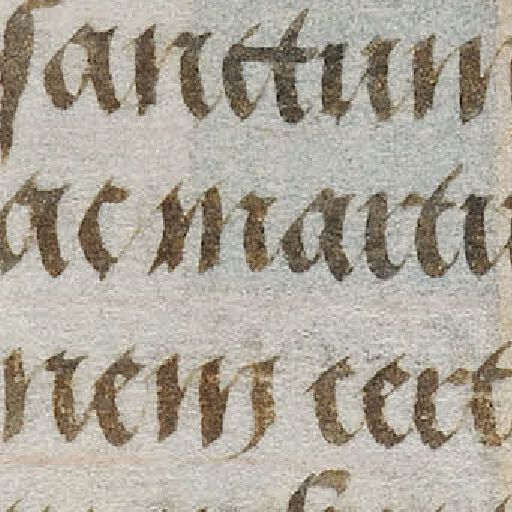 sanctum
ac marti
nem cert